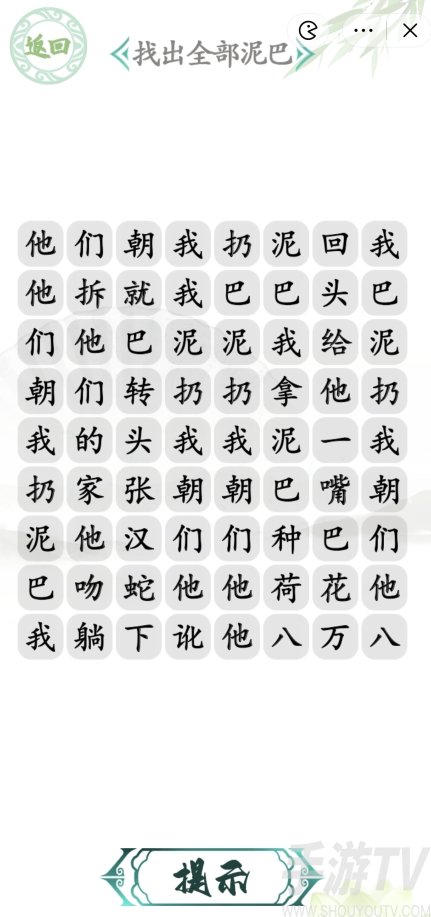 返回
找出全部泥巴
他们朝我扔泥回我
他拆就我巴巴头巴
们他巴泥泥我给泥
朝们转扔扔拿他扔
我的头我我泥一我
扔家张朝朝巴嘴朝
泥他汉们们种巴们
巴吻蛇他他荷花他
我躺下讹他八万八
提示
手游TV
WWW.SHOUYOUTV.COM